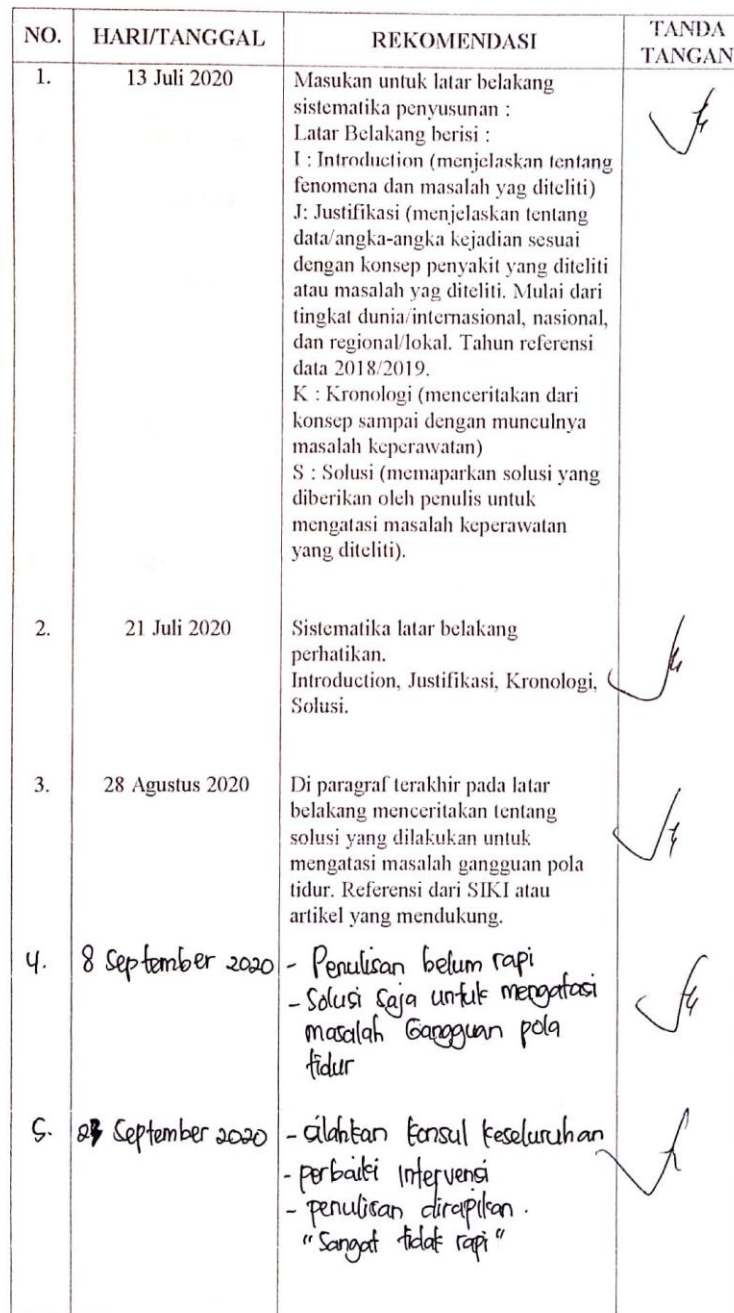 NO. HARI/TANGGAL REKOMENDASI TANDA TANGAN
1. 13 Juli 2020 Masukan untuk latar belakang
sistematika penyusunan :
Latar Belakang berisi :
I : Introduction (menjelaskan tentang
fenomena dan masalah yag diteliti)
J: Justifikasi (menjelaskan tentang
data/angka-angka kejadian sesuai
dengan konsep penyakit yang diteliti
atau masalah yag diteliti. Mulai dari
tingkat dunia/internasional, nasional,
dan regional/lokal. Tahun referensi
data 2018/2019.
K : Kronologi (menceritakan dari
konsep sampai dengan munculnya
masalah keperawatan)
S : Solusi (memaparkan solusi yang
diberikan oleh penulis untuk
mengatasi masalah keperawatan
yang diteliti).
2. 21 Juli 2020 Sistematika latar belakang
perhatikan.
Introduction, Justifikasi, Kronologi,
Solusi.
3. 28 Agustus 2020 Di paragraf terakhir pada latar
belakang menceritakan tentang
solusi yang dilakukan untuk
mengatasi masalah gangguan pola
tidur. Referensi dari SIKI atau
artikel yang mendukung.
4. 8 September 2020 - Penulisan belum rapi
- Solusi saja untuk mengatasi
masalah Gangguan pola
tidur
5. September 2020 - silahkan konsul keseluruhan
- perbaiki intervensi
- penulisan dirapikan.
"Sangat tidak rapi"